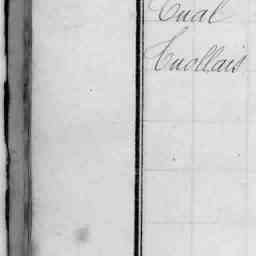 Cual
Cuollais